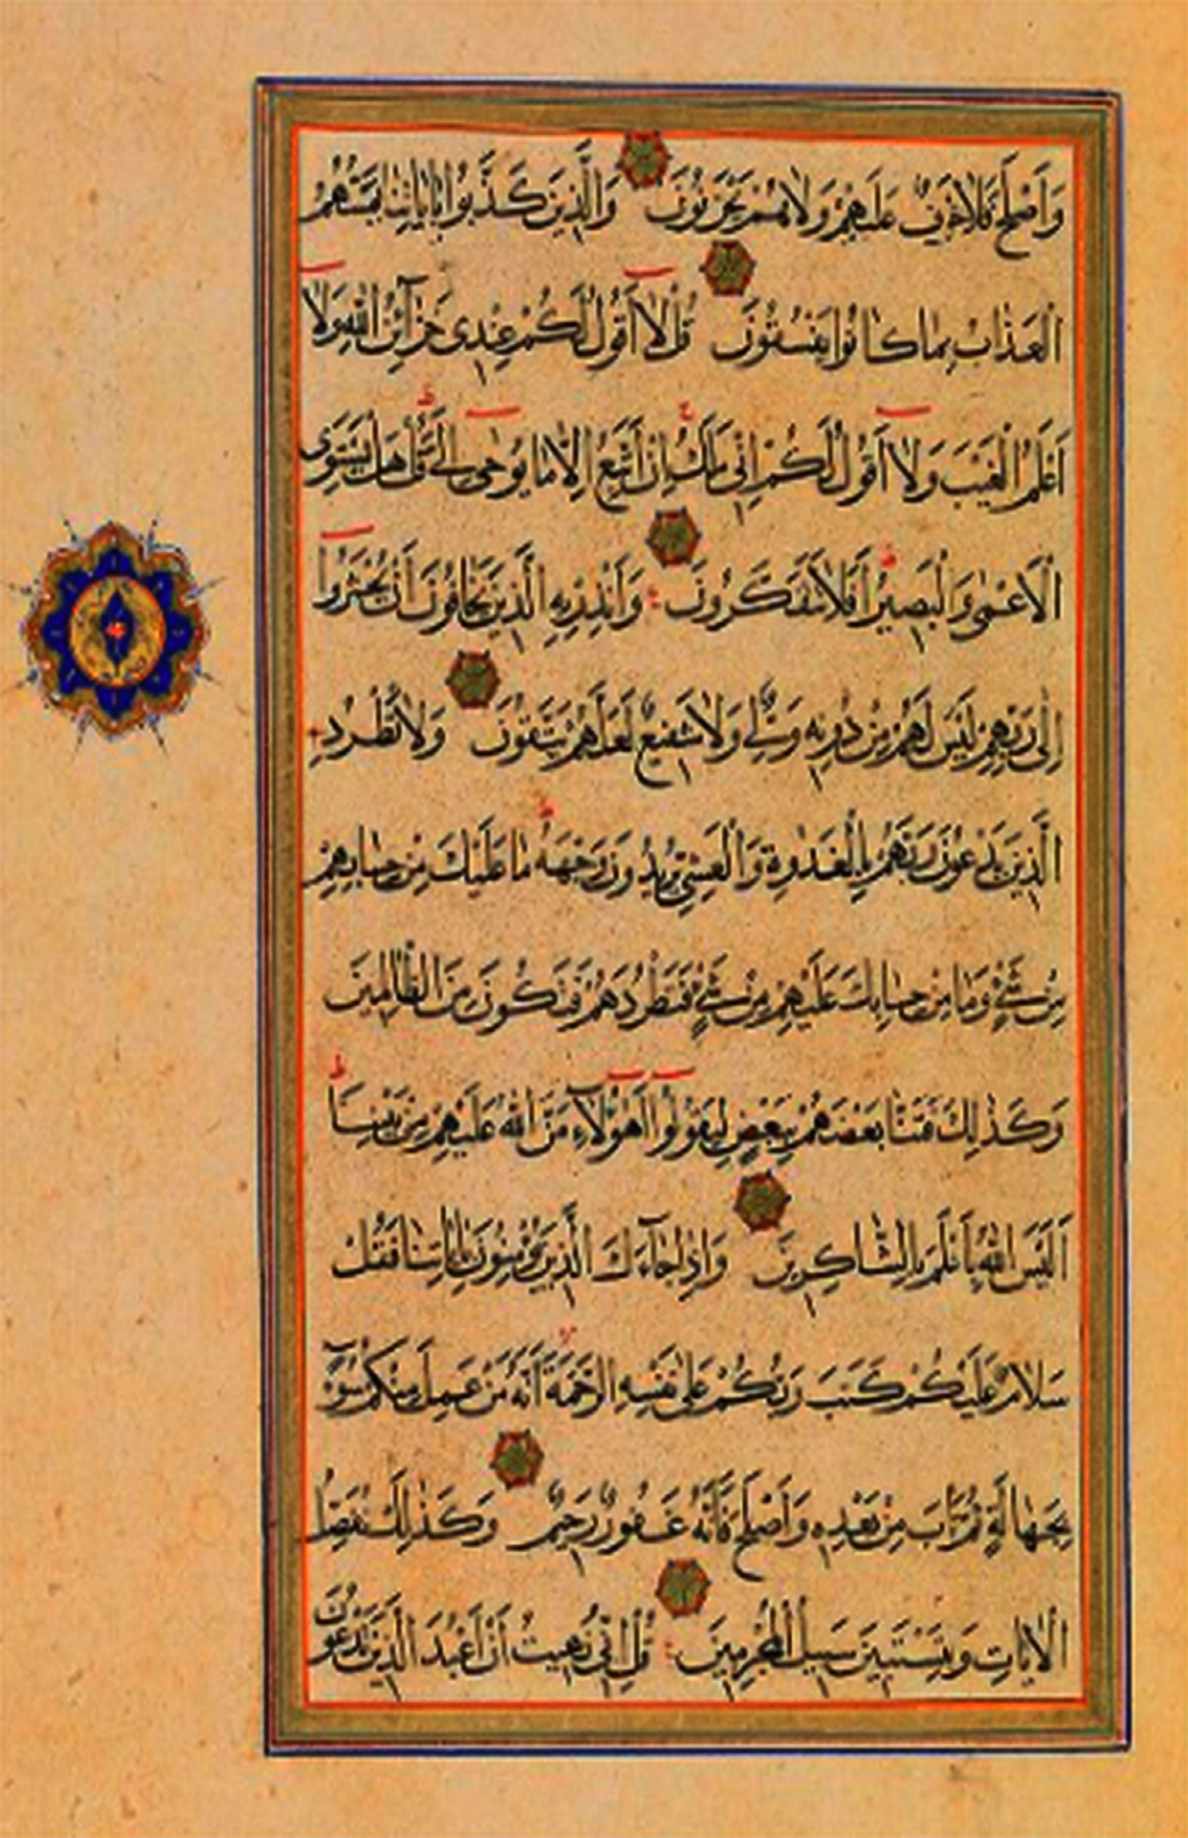 وَأَصْلَحَ فَلَا خَوْفٌ عَلَيْهِمْ وَلَا هُمْ يَحْزَنُونَ وَالَّذِينَ كَذَّبُوا بِاٰيَاتِنَا يَمَسُّهُمُ
الْعَذَابُ بِمَا كَانُوا يَفْسُقُونَ قُلْ لَا أَقُولُ لَكُمْ عِنْدِي خَزَآئِنُ اللّٰهِ وَلَا
أَعْلَمُ الْغَيْبَ وَلَا أَقُولُ لَكُمْ إِنِّي مَلَكٌ إِنْ أَتَّبِعُ إِلَّا مَا يُوحٰى إِلَيَّ قُلْ هَلْ يَسْتَوِي
الْأَعْمٰى وَالْبَصِيرُ أَفَلَا تَتَفَكَّرُونَ وَأَنْذِرْ بِهِ الَّذِينَ يَخَافُونَ أَنْ يُحْشَرُوا
إِلٰى رَبِّهِمْ لَيْسَ لَهُمْ مِنْ دُونِهِ وَلِيٌّ وَلَا شَفِيعٌ لَعَلَّهُمْ يَتَّقُونَ وَلَا تَطْرُدِ
الَّذِينَ يَدْعُونَ رَبَّهُمْ بِالْغَدٰوةِ وَالْعَشِيِّ يُرِيدُونَ وَجْهَهُ مَا عَلَيْكَ مِنْ حِسَابِهِمْ
مِنْ شَيْءٍ وَمَا مِنْ حِسَابِكَ عَلَيْهِمْ مِنْ شَيْءٍ فَتَطْرُدَهُمْ فَتَكُونَ مِنَ الظَّالِمِينَ
وَكَذٰلِكَ فَتَنَّا بَعْضَهُمْ بِبَعْضٍ لِيَقُولُوا أَهٰؤُلَاءِ مَنَّ اللّٰهُ عَلَيْهِمْ مِنْ بَيْنِنَا
أَلَيْسَ اللّٰهُ بِأَعْلَمَ بِالشَّاكِرِينَ وَإِذَا جَآءَكَ الَّذِينَ يُؤْمِنُونَ بِاٰيَاتِنَا فَقُلْ
سَلَامٌ عَلَيْكُمْ كَتَبَ رَبُّكُمْ عَلٰى نَفْسِهِ الرَّحْمَةَ أَنَّهُ مَنْ عَمِلَ مِنْكُمْ سُوٓءًا
بِجَهَالَةٍ ثُمَّ تَابَ مِنْ بَعْدِهِ وَأَصْلَحَ فَأَنَّهُ غَفُورٌ رَحِيمٌ وَكَذٰلِكَ نُفَصِّلُ
الْاٰيَاتِ وَلِتَسْتَبِينَ سَبِيلُ الْمُجْرِمِينَ قُلْ إِنِّي نُهِيتُ أَنْ أَعْبُدَ الَّذِينَ تَدْعُونَ